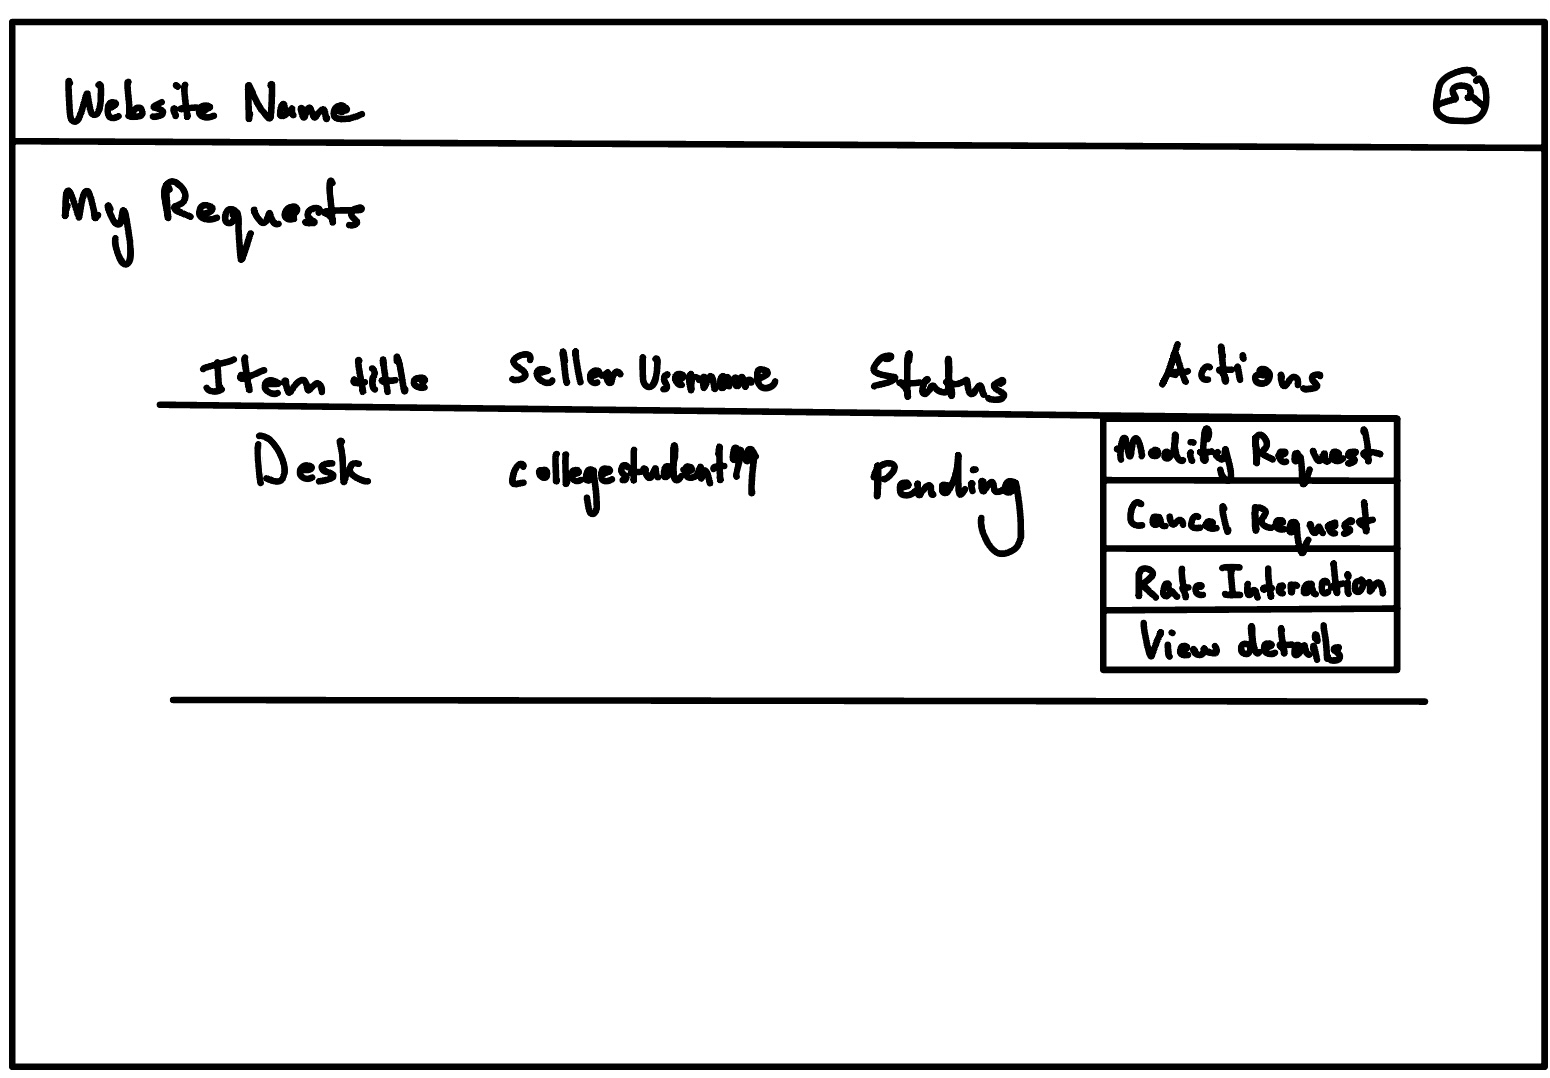 Website Name
My Requests
Item title Seller Username Status Actions
Desk collegestudent99 Pending Modify Request
Cancel Request
Rate Interaction
View details